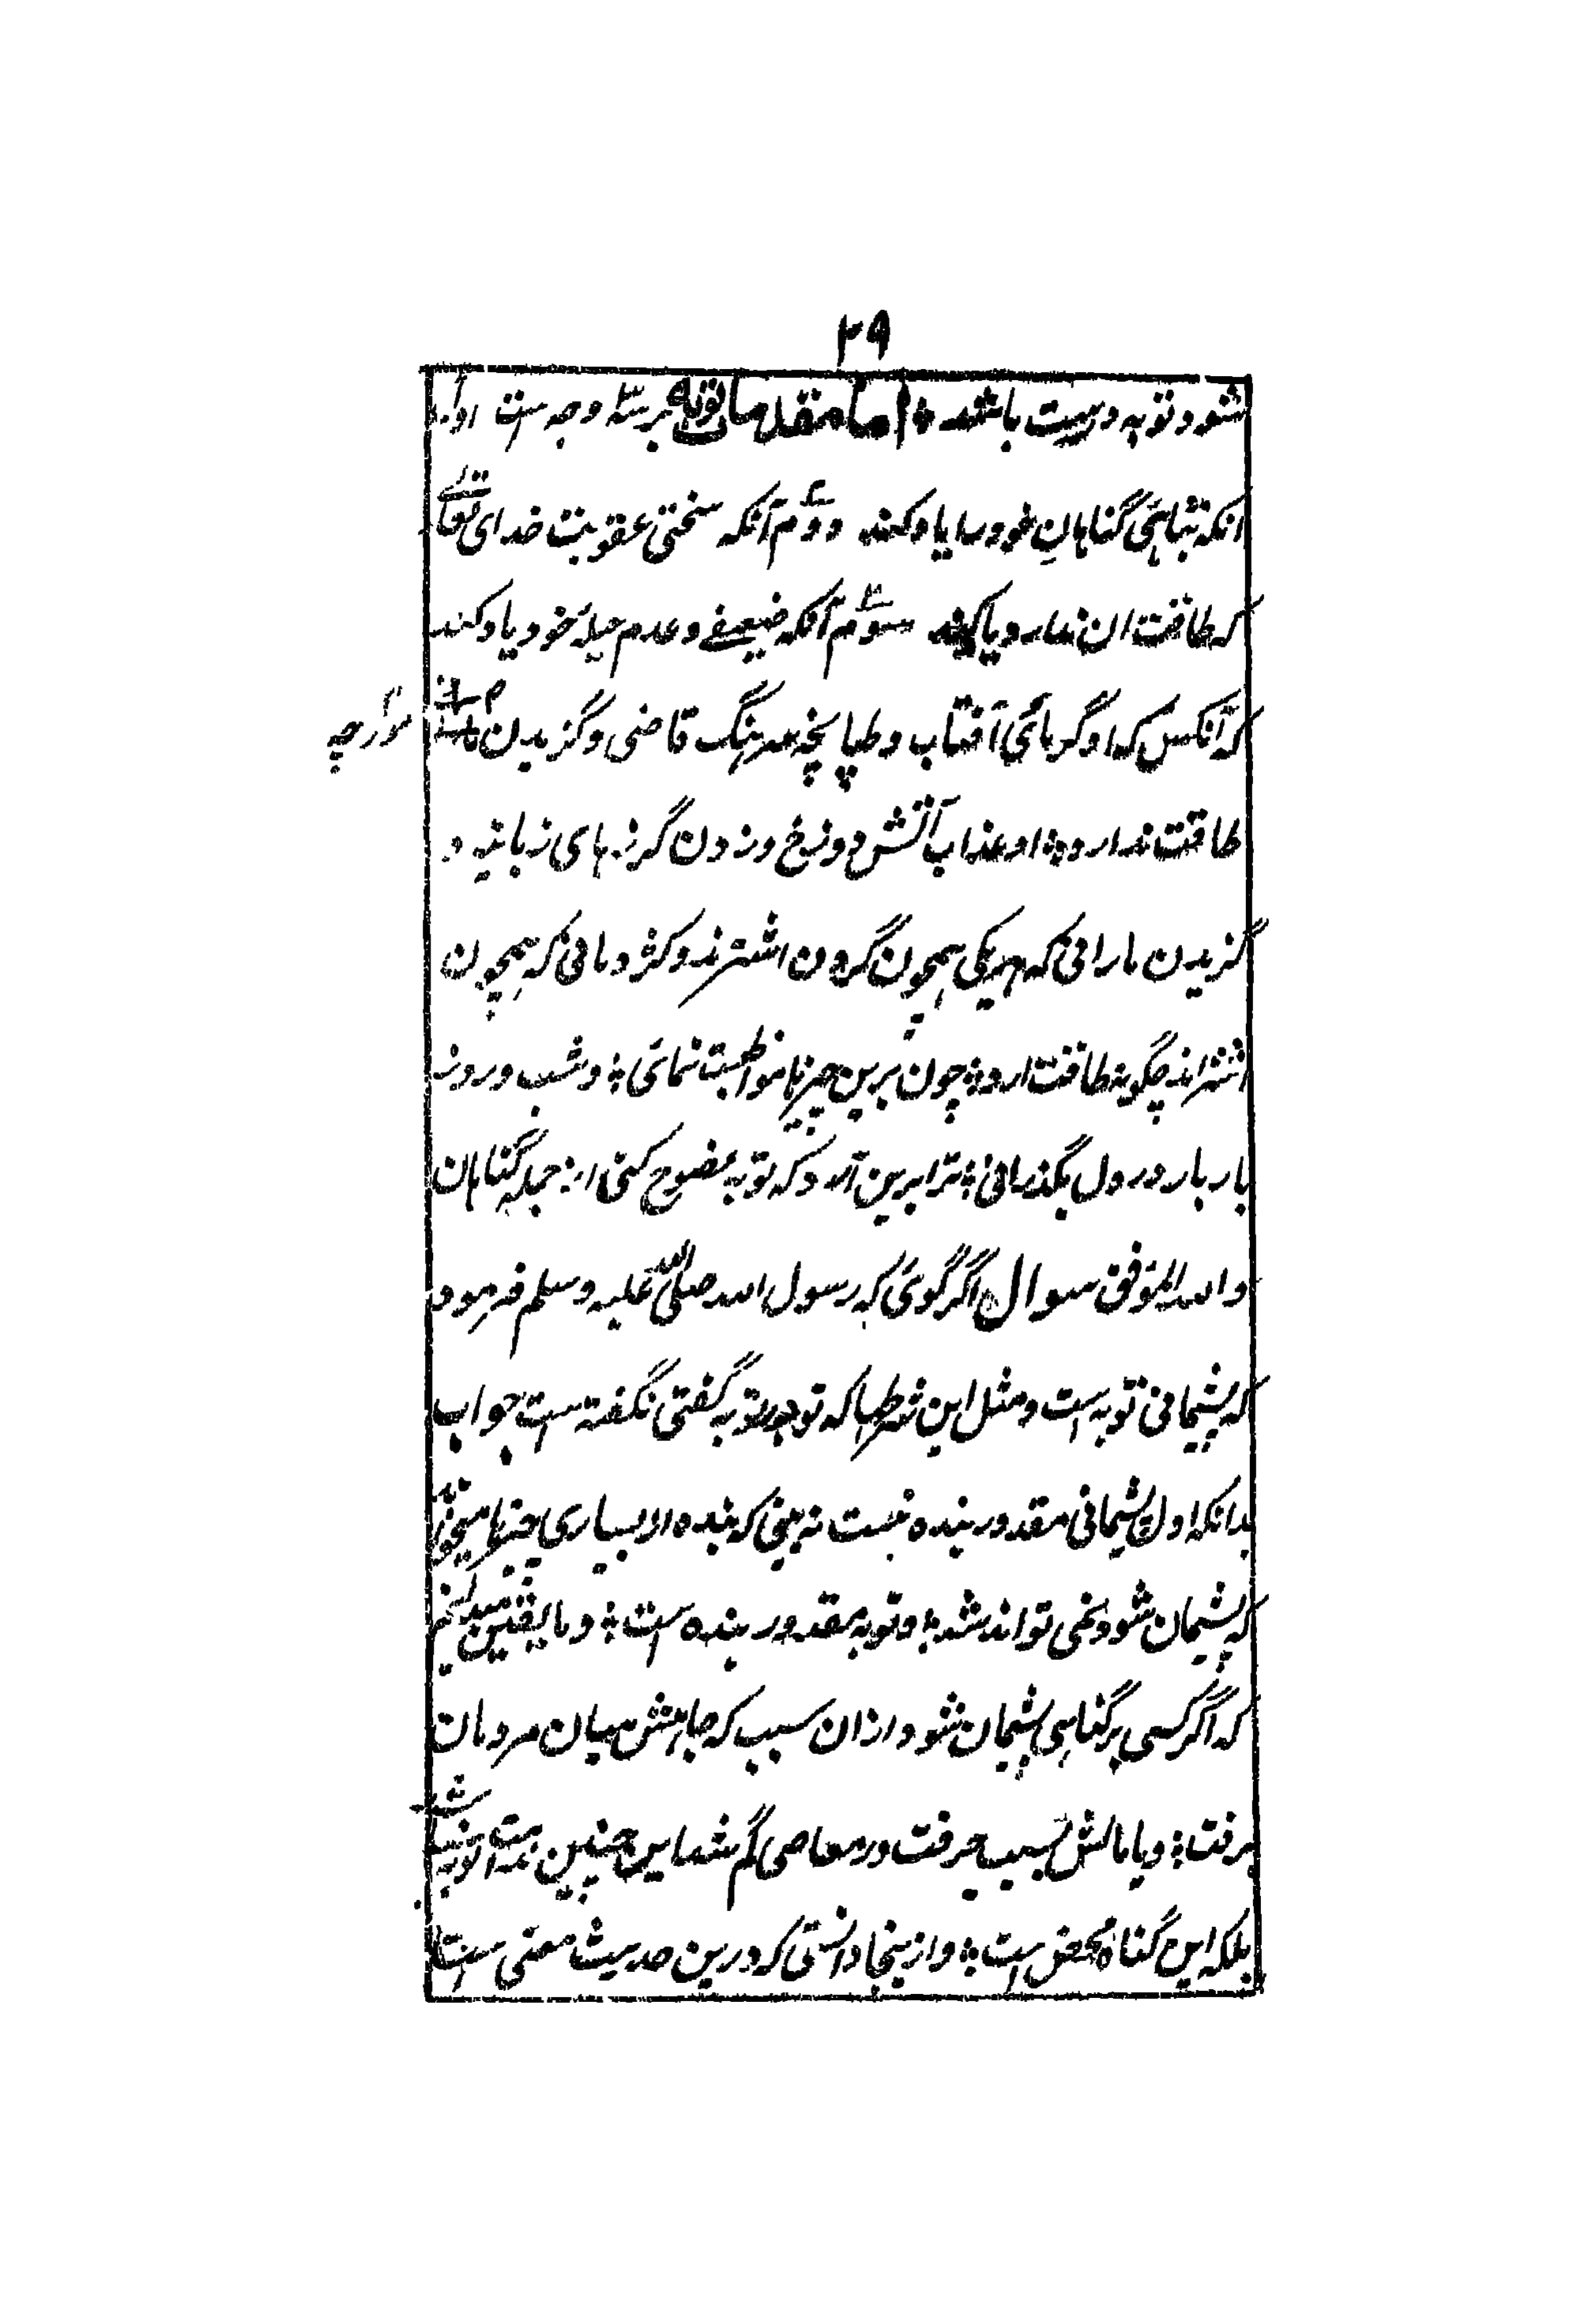 ۲۹
شود و توبه درست باشد ؛ اما مقدمات توبه بر سه وجه ست اول
انکه تباهئ گناهانِ خود را یاد کند دوّم آنکه سختئ عقوبت خدای تعالے
که طاقت ان ندارد یاد کند سوّم آنکه ضیعفے و عدم حیلۀ خود یاد کند
که آنکس که او گرمائی آفتاب و طپانچه سرہنگ قاضی و گزیدن
مورچه
طاقت ندارد ؛ او عذاب آتش دوزخ و زدن گرز ہای زبانیه و
گزیدن مارانی که ہریکی ہمچون گردن اشترند و کژدمانی که ہمچون
اشتراند چگونه طاقت ارد ؛ چون برین چیزہا مواظبت نمائی ؛ و شب و روز
بار بار در دل بگذرانی ؛ ترا برین آرد که توبه نصوح کنی از جمله گناہان
و الله الموفق سوال اگر گوئی که رسول الله صلی الله علیه وسلم فرمود
که پشیمانی توبه است و مثل این شرطہا که تو در توبه گفتی نگفته است جواب
بدانکه اول پشیمانی مقدور بنده نیست نه بینی که بنده از بسیاری چیزہا میخواہد
که پشیمان شود نمی تواند شد ؛ و توبه مقدور بنده است ؛ و ما یقین میدانیم
که اگر کسی بر گناہی پشیمان شود ازان سبب که جاہش میان مردمان
برفت ؛ و یا مالش بسبب حرفت در معاصی گم شد این چنین ندامت توبه نباشد
بلکه این گناه محض است ؛ و از ینجا دانستی که درین حدیث معنی است